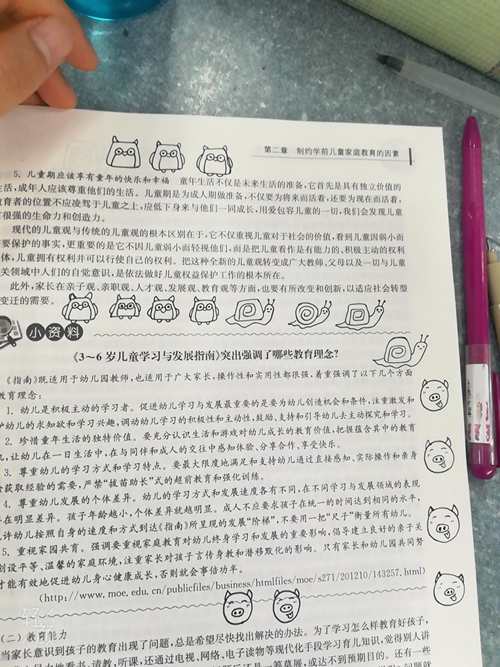 第二章 制约学前儿童家庭教育的因素
5. 儿童期应该享有童年的快乐和幸福 童年生活不仅是未来生活的准备,它首先是具有独立价值的
生活,成年人应该尊重他们的生活。儿童期是为成人期做准备,不仅要为将来而活着,还要为现在而活着,
教育者的位置不应凌驾于儿童之上,应低下身来与他们一同成长,用爱包容儿童的一切,我们会发现儿童
有很强的生命力和创造力。
现代的儿童观与传统的儿童观的根本区别在于,它不仅重视儿童对于社会的价值,看到儿童因弱小而
要保护的事实,更重要的是它不因儿童弱小而轻视他们,而是把儿童看作是有能力的、积极主动的权利
体,儿童拥有权利并可以行使自己的权利。把这种全新的儿童观转变成广大教师、父母以及一切与儿童
关领域中人们的自觉意识,是依法做好儿童权益保护工作的根本所在。
此外,家长在亲子观、亲职观、人才观、发展观、教育观等方面,也要有所改变和创新,以适应社会转型
变迁的需要。
小资料
《3~6 岁儿童学习与发展指南》突出强调了哪些教育理念?
《指南》既适用于幼儿园教师,也适用于广大家长,操作性和实用性都很强,着重强调了以下几个方面
教育理念:
1. 幼儿是积极主动的学习者。促进幼儿学习与发展最重要的是要为幼儿创造机会和条件,注重激发和
护幼儿的求知欲和学习兴趣,调动幼儿学习的积极性和主动性,鼓励、支持和引导幼儿去主动探究和学习。
2. 珍惜童年生活的独特价值。要充分认识生活和游戏对幼儿成长的教育价值,把握蕴含其中的教育
机,让幼儿在一日生活中,在与同伴和成人的交往中感知体验、分享合作、享受快乐。
3. 尊重幼儿的学习方式和学习特点。要最大限度地满足和支持幼儿通过直接感知、实际操作和亲身
验获取经验的需要,严禁“拔苗助长”式的超前教育和强化训练。
4. 尊重幼儿发展的个体差异。幼儿的学习方式和发展速度各有不同,在不同学习与发展领域的表现
存在明显差异。孩子年龄越小,个体差异就越明显。成人不应要求孩子在统一的时间达到相同的水平,
允许幼儿按照自身的速度和方式到达《指南》所呈现的发展“阶梯”,不要用一把“尺子”衡量所有幼儿。
5. 重视家园共育。强调要重视家庭教育对幼儿终身学习和发展的重要影响,倡导建立良好的亲子关
创设平等、温馨的家庭环境,注重家长对孩子言传身教和潜移默化的影响。只有家长和幼儿园共同努
才能有效地促进幼儿身心健康成长,否则就会事倍功半。
(http://www.moe.edu.cn/publicfiles/business/htmlfiles/moe/s271/201210/143257.html)
(二) 教育能力
当家长意识到孩子的教育出现了问题,总是希望尽快找出解决的办法。为了学习怎么样教育好孩子,
看书、请教、听课,还通过电视、网络、电子读物等现代化手段学习育儿知识,觉得别人讲